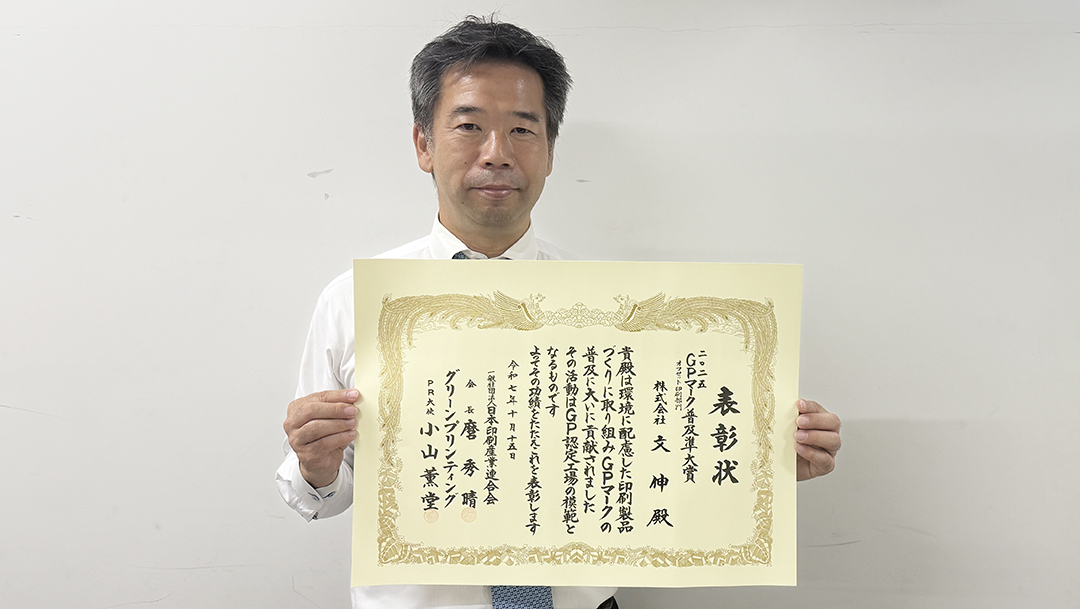 表彰状
二〇二五
GPマーク普及準大賞
オフセット印刷部門
株式会社 文伸 殿
貴殿は環境に配慮した印刷製品
づくりに取り組みGPマークの
普及に大いに貢献されました
その活動はGP認定工場の模範と
なるものです
よってその功績をたたえこれを表彰します
令和七年十月十五日
一般社団法人日本印刷産業連合会
会長 麿秀晴
グリーンプリンティング
PR大使 小山薫堂